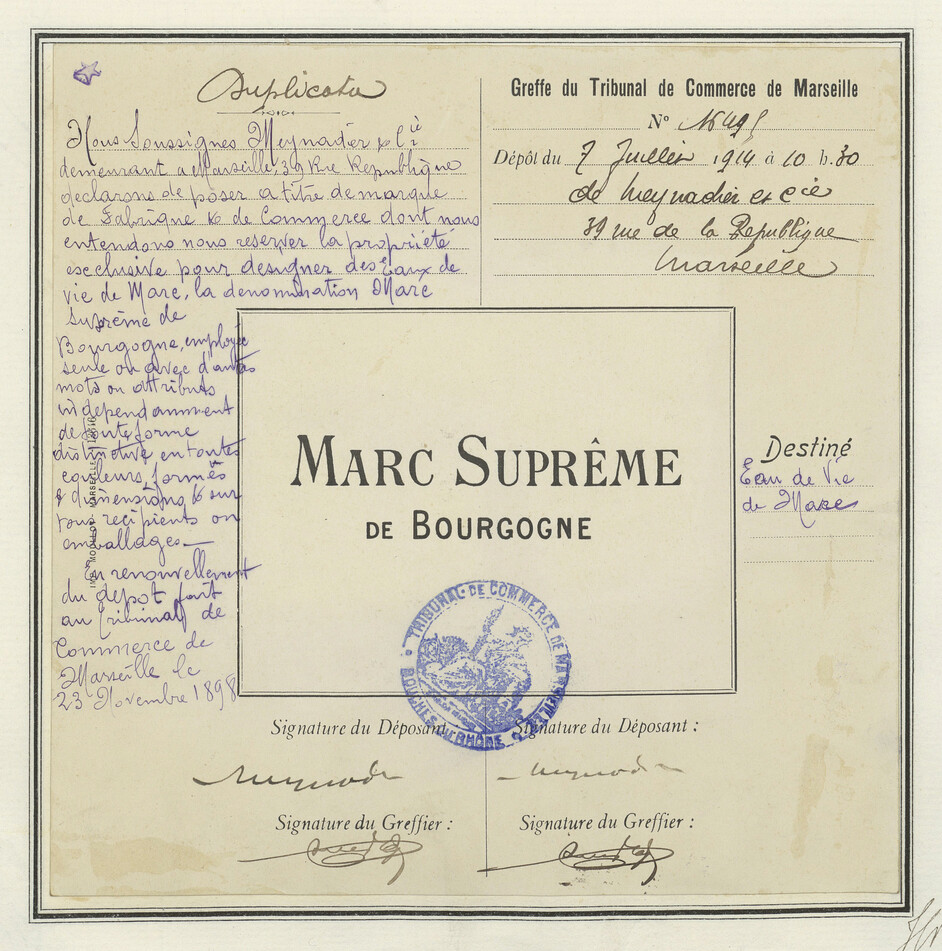 Duplicata
Nous Soussignés Meynadier & Cie
demeurant a Marseille, 39 Rue République
declarons deposer a titre de marque
de Fabrique & de Commerce dont nous
entendons nous reserver la propriété
exclusive pour designer des Eaux de
vie de Marc, la denomination Marc
Suprême de
Bourgogne, employée
seule ou avec d'autres
mots ou attributs
independamment
de toute forme
distinctive en toutes
couleurs, formes
& dimensions & sur
tous recipients ou
emballages.—
En renouvellement
du depot fait
au Tribunal de
Commerce de
Marseille le
23 Novembre 1898
Greffe du Tribunal de Commerce de Marseille
N°
Dépôt du 7 Juillet 1914 à 10 h. 30
de Meynadier et Cie
39 rue de la République
Marseille
MARC SUPRÊME
DE BOURGOGNE
Destiné
Eau de Vie
de Marc
TRIBUNAL DE COMMERCE DE MARSEILLE
BOUCHES DU RHÔNE
Signature du Déposant
Signature du Déposant :
Meynadier
Meynadier
Signature du Greffier :
Signature du Greffier :
MOULLOT MARSEILLE